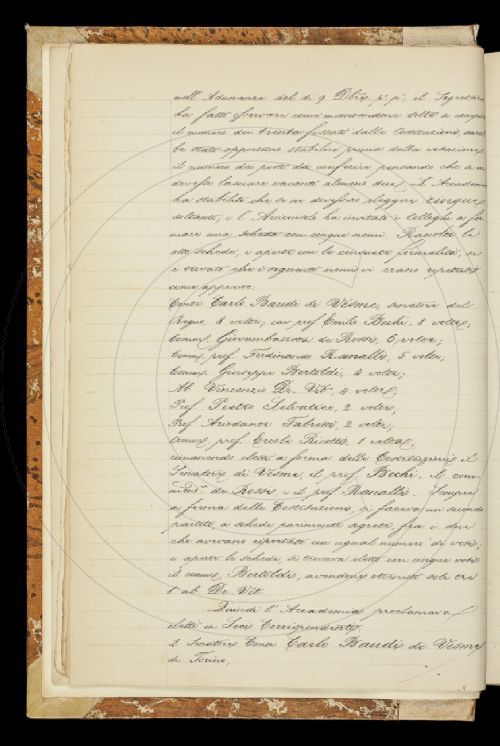 nell'Adunanza del dì 9 Dbre p.º p.º, il Segretario
ha fatto
il numero dei trenta fissato dalle Costituzioni, sareb
be stato opportuno stabilire prima della votazione
il numero dei posti da conferire pensando che si
dovesse lasciare vacanti almeno due. L'Accademia
ha stabilito che se ne dovessero eleggere cinque
soltanto, e l'Arciconsolo ha invitato i Colleghi a for
mare una scheda con cinque nomi. Raccolte le
dette schede, e aperte con le consuete formalità, si
è trovato che i seguenti nomi vi erano ripetuti
come appresso:
Conte Carlo Baudi di Vesme, senatore del
Regno, 8 voti; cav. prof. Emilio Bechi, 8 voti;
Comm. Giovambatista de Rossi, 6 voti;
Comm. prof. Ferdinando Ranalli, 5 voti;
Comm. Giuseppe Bertoldi, 4 voti;
Ab. Vincenzio De-Vit, 4 voti;
Prof. Pietro Selvatico, 2 voti;
Prof. Ariodante Fabretti, 2 voti;
Comm. prof. Ercole Ricotti, 1 voto,
rimanendo eletti a forma delle Costituzioni il
Senatore di Vesme, il prof. Bechi, il com
m. de Rossi e il prof. Ranalli. Sempre
a forma delle Costituzioni, si faceva un secondo
partito, a schede parimente segrete, fra i due
che avevano riportato un egual numero di voti;
e aperte le schede, si trovava eletto con cinque voti
il comm. Bertoldi, avendone ottenuti soli tre
l'ab. De-Vit.
Quindi l'Accademia proclamava
eletti in Socii Corrispondenti
il Senatore Conte Carlo Baudi di Vesme
di Torino,